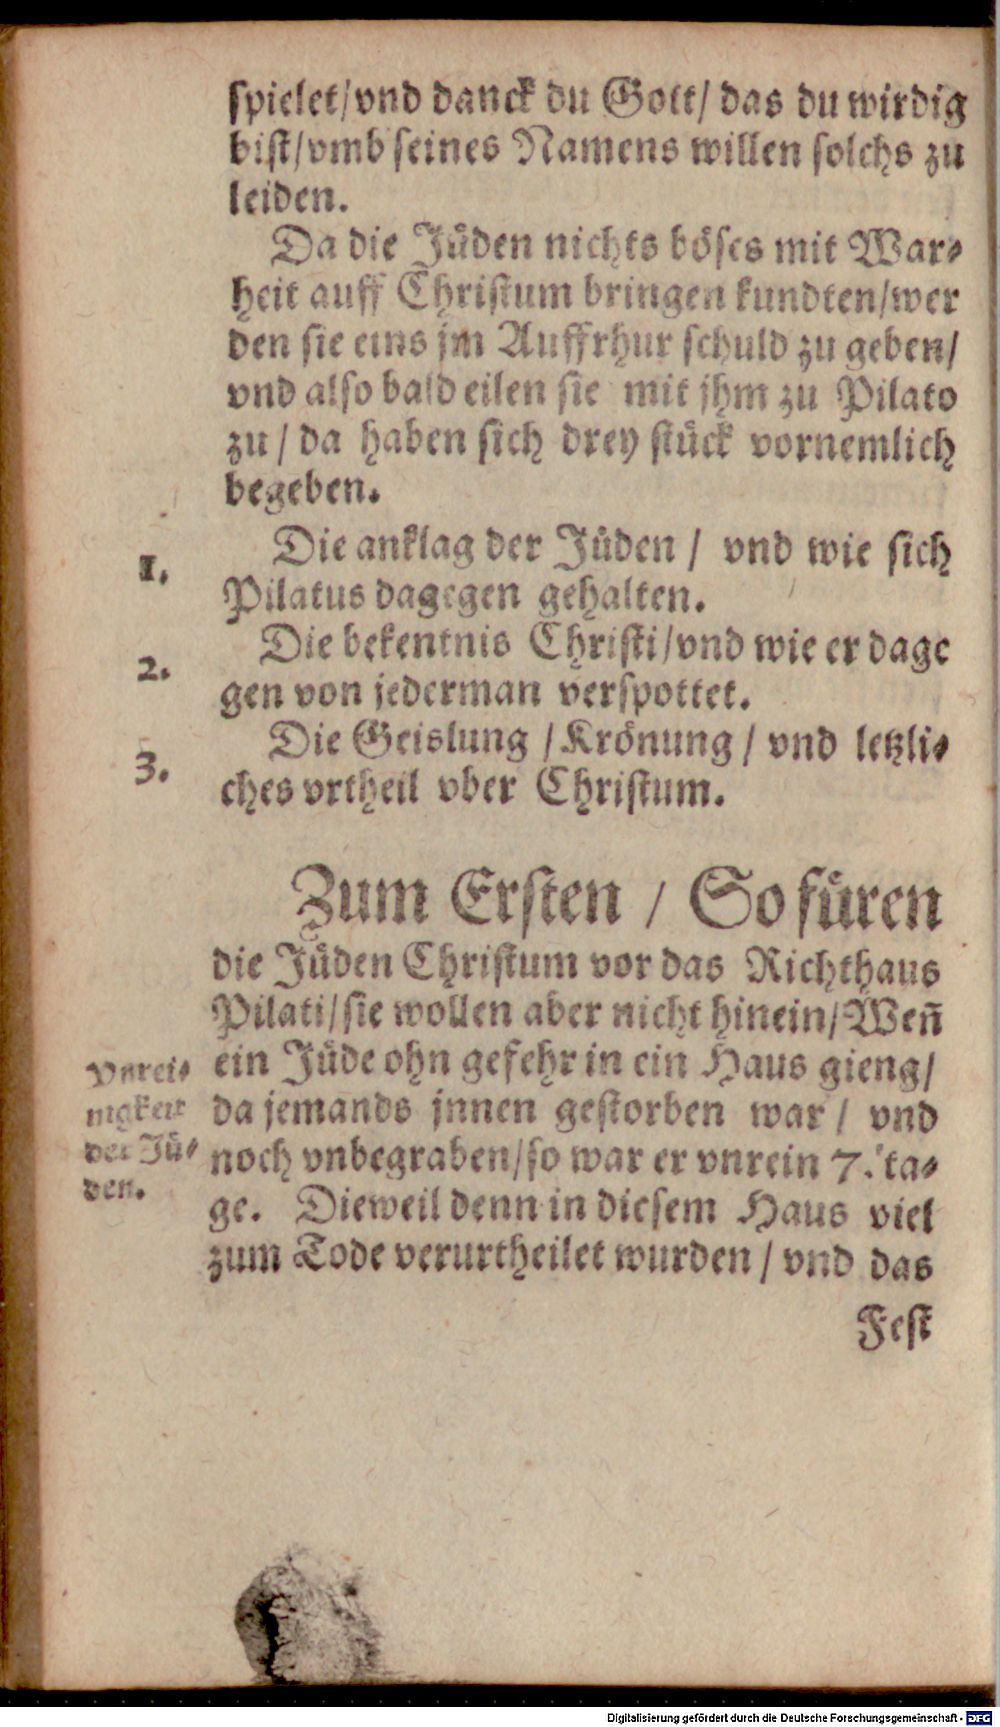 spielet/vnd danck du Gott/ das du wirdig
bist/vmb seines Namens willen solchs zu
leiden.
Da die Jüden nichts böses mit War-
heit auff Christum bringen kundten/wer
den sie eins jm Auffrhur schuld zu geben/
vnd also bald eilen sie mit jhm zu Pilato
zu / da haben sich drey stück vornemlich
begeben.
1. Die anklag der Jüden / vnd wie sich
Pilatus dagegen gehalten.
2. Die bekentnis Christi/vnd wie er dage
gen von jederman verspottet.
3. Die Geislung / Krönung / vnd letzli-
ches vrtheil vber Christum.
Zum Ersten / So füren
die Jüden Christum vor das Richthaus
Pilati/sie wollen aber nicht hinein/Weñ
ein Jüde ohn gefehr in ein Haus gieng/
da jemands jnnen gestorben war / vnd
noch vnbegraben/so war er vnrein 7. ta-
ge. Dieweil denn in diesem Haus viel
zum Tode verurtheilet wurden / vnd das
Fest
Vnrei-
nigkeit
der Jü-
den.
Digitalisierung gefördert durch die Deutsche Forschungsgemeinschaft - DFG